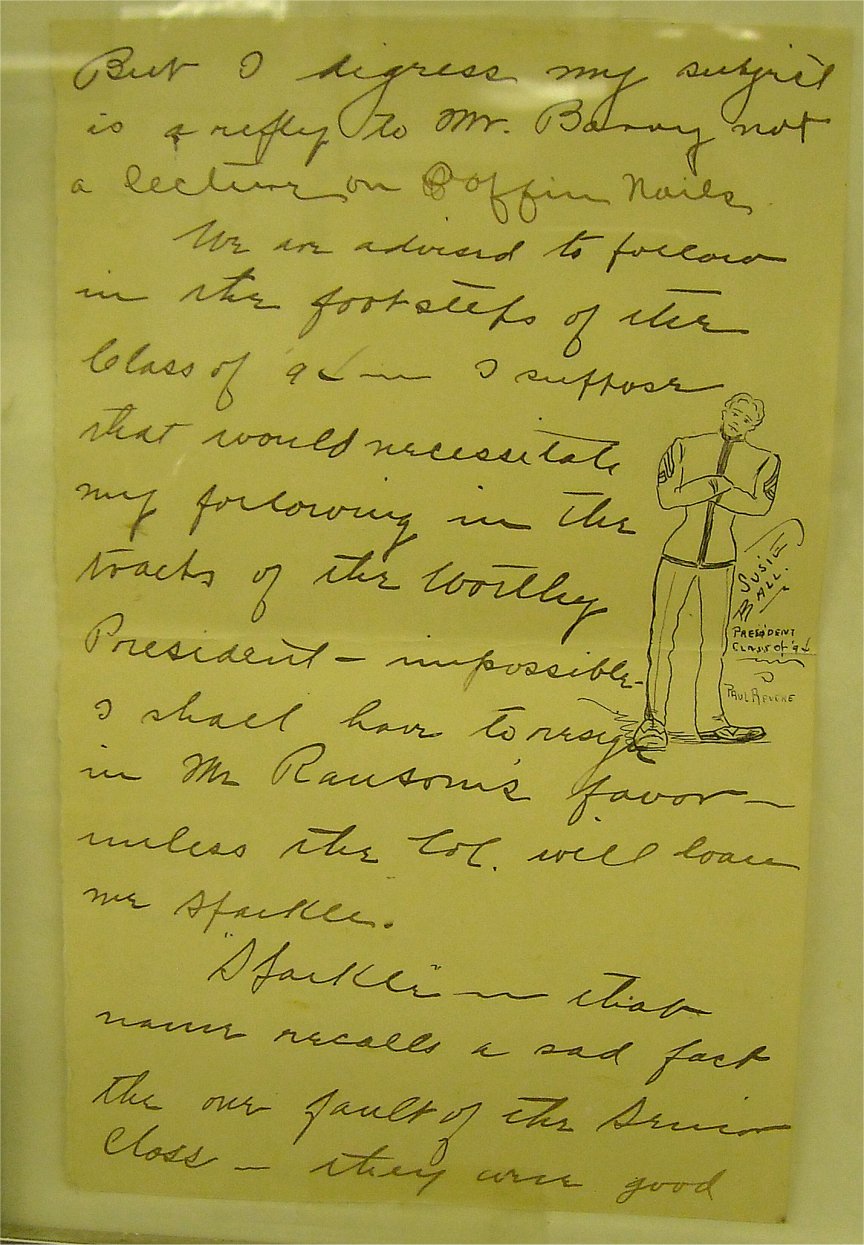 But I digress my subject
is a reply to Mr. Barry not
a lecture on Coffin Nails
We are advised to follow
in the footsteps of the
Class of '94 — I suppose
that would necessitate
my following in the
tracks of the Worthy
President — impossible -
I shall have to resign
in Mr Ransom's favor —
unless the Col. will loan
me Sparkle.
"Sparkle" — that
name recalls a sad fact
the one fault of the Senior
Class — they were good
SUSIE
BALL.
PRESIDENT
CLASS of '94
PAUL REVERE